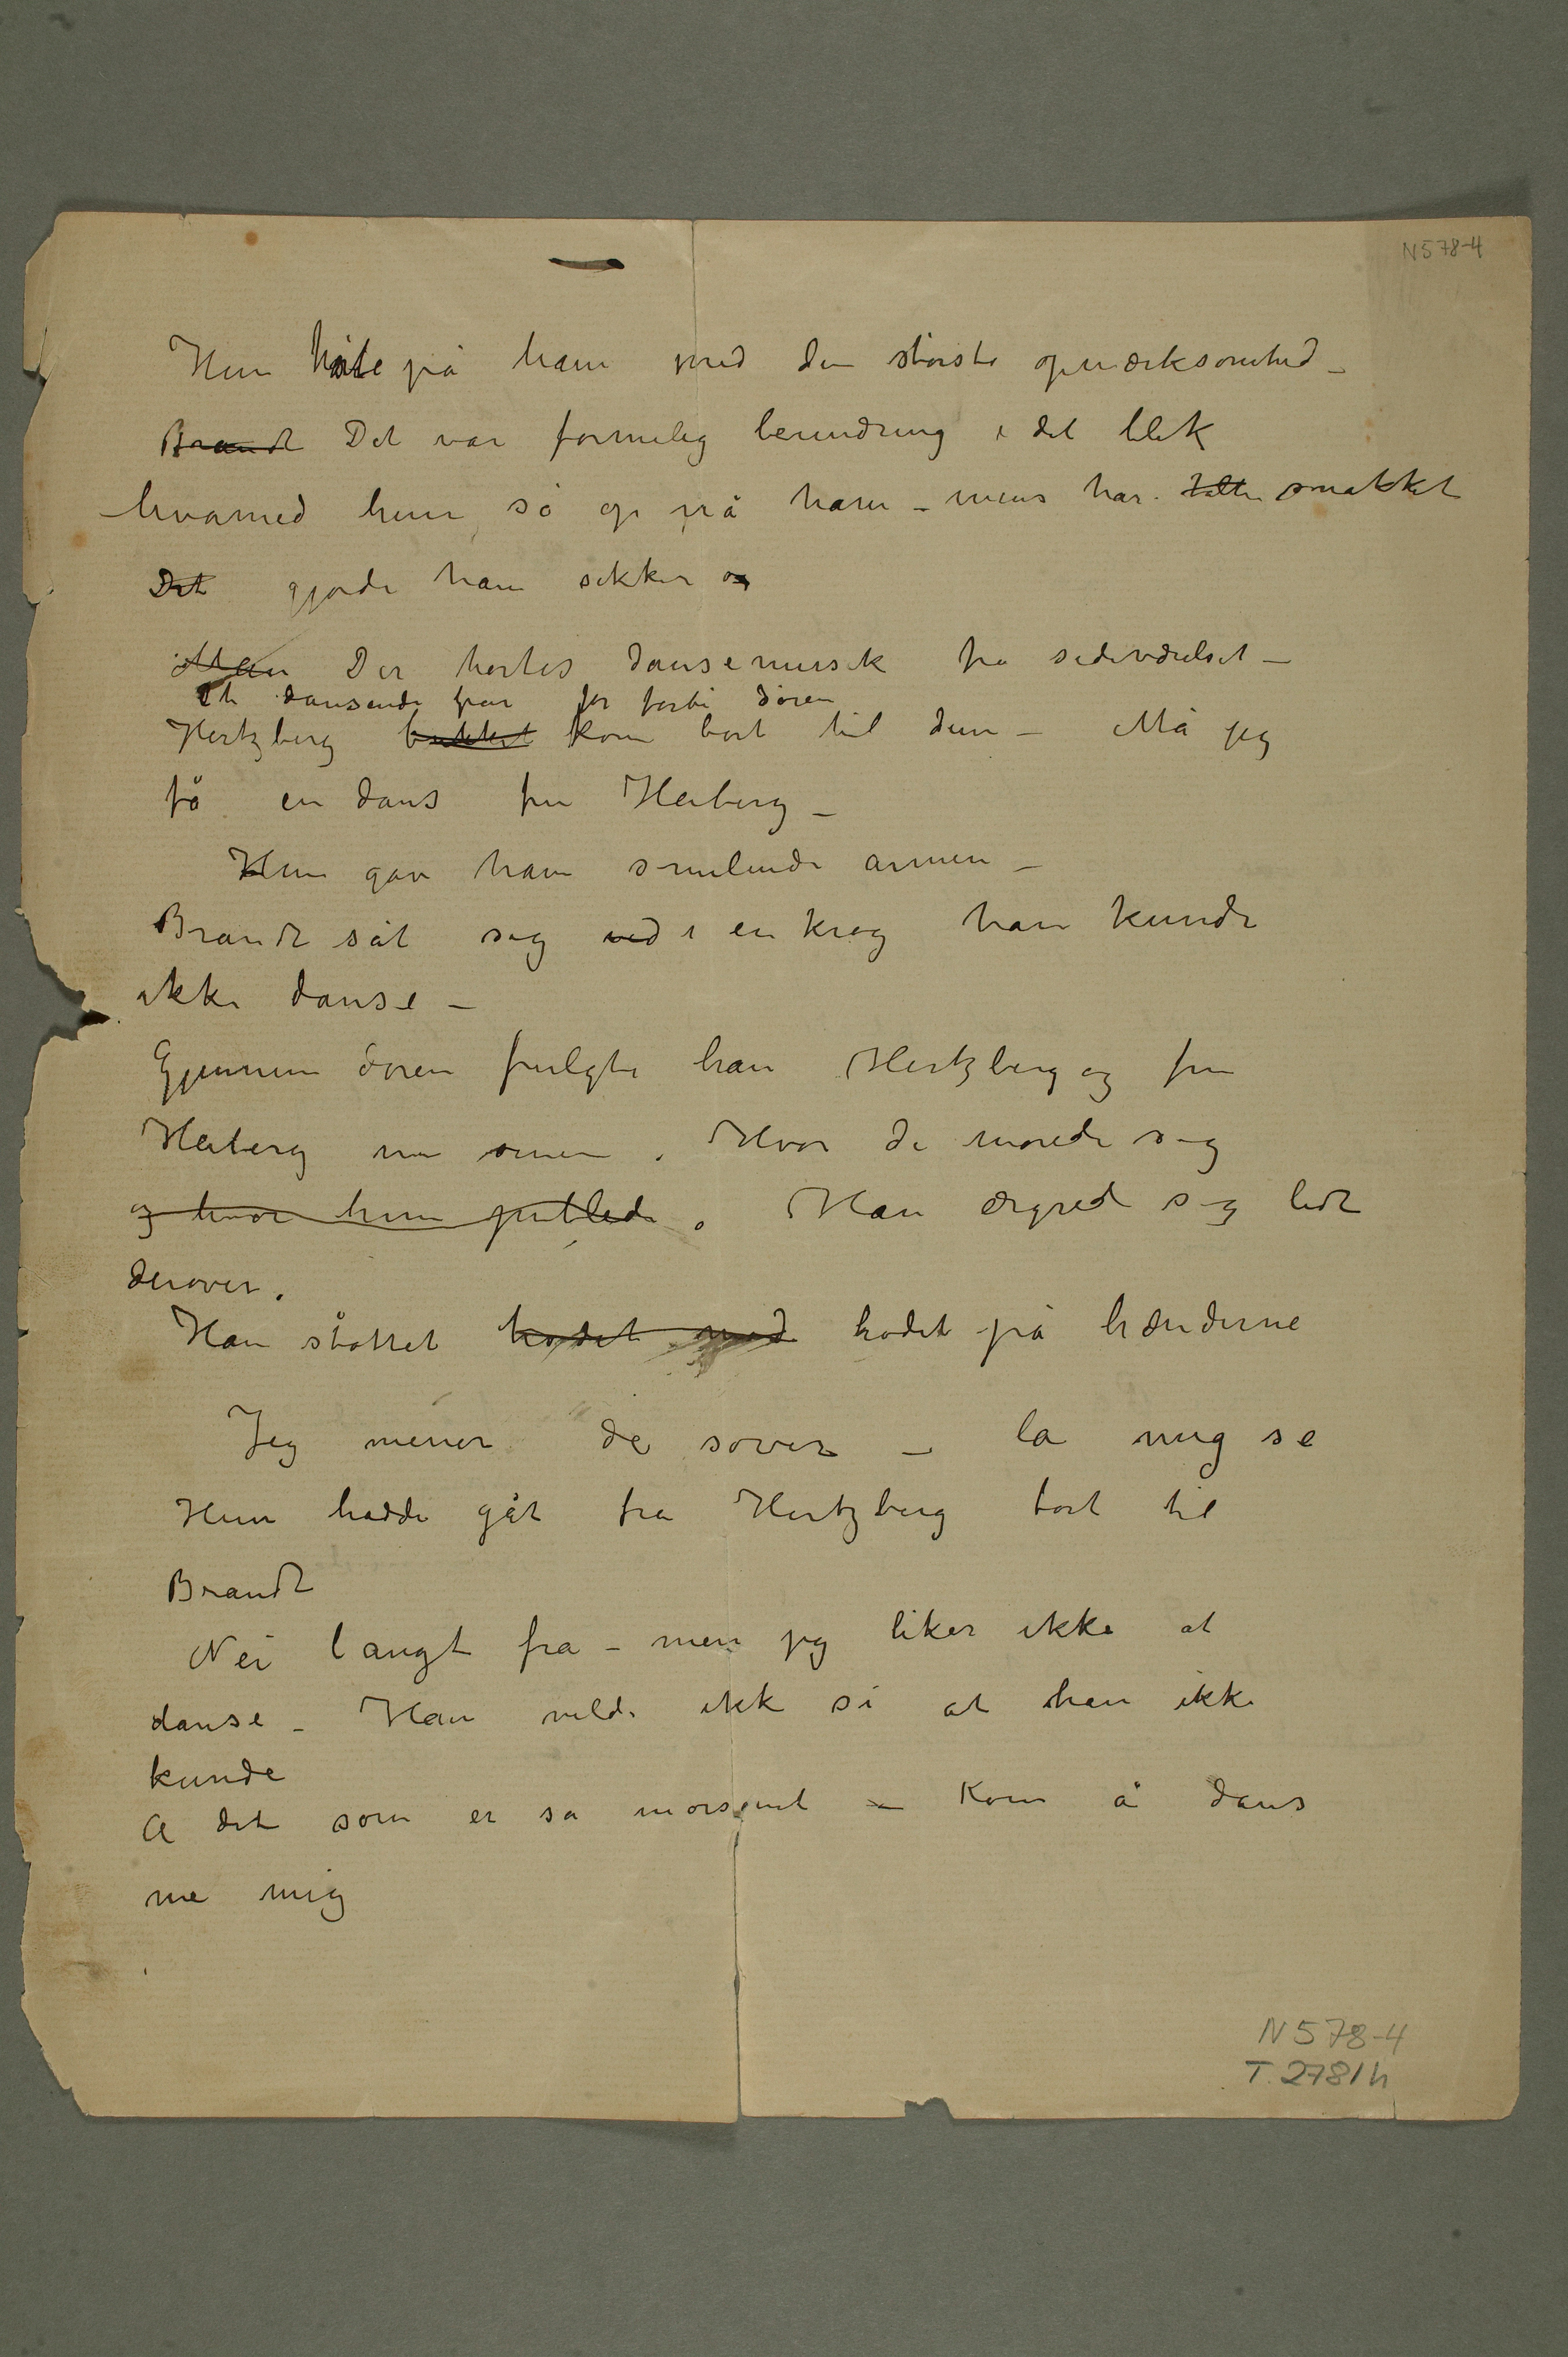 N578-4
Hun hørte på ham med den største opmærksomhed –
Brandt Det var formelig beundring i det blik
hvormed hun så op på ham – mens han talte snakket
Det gjorde ham sikker og
Man Der hørtes dansemusik fra sideværelset –
Et dansende par for forbi døren
Hertzberg bukket kom bort til dem – Må jeg
få en dans fru Heiberg –
Hun gav ham smilende armen –
Brandt sat sig ved i en krog han kunde
ikke danse –
Gjennem døren fulgte han Hertzberg og fru
Heiberg . Hvor de morede sig
og hvor hun . Han ærgred sig lidt
derover.
Han støttet hodet med hodet på hænderne
Jeg mener de sover – la mig se
Hun hadde gåt fra Hertzberg bort til
Brandt
Nei langt fra – men jeg liker ikke at
danse – Han vilde ikk si at han ikke
kunde
A det som er så morsomt – Kom å dans
me mig
N 578-4
T. 2781h